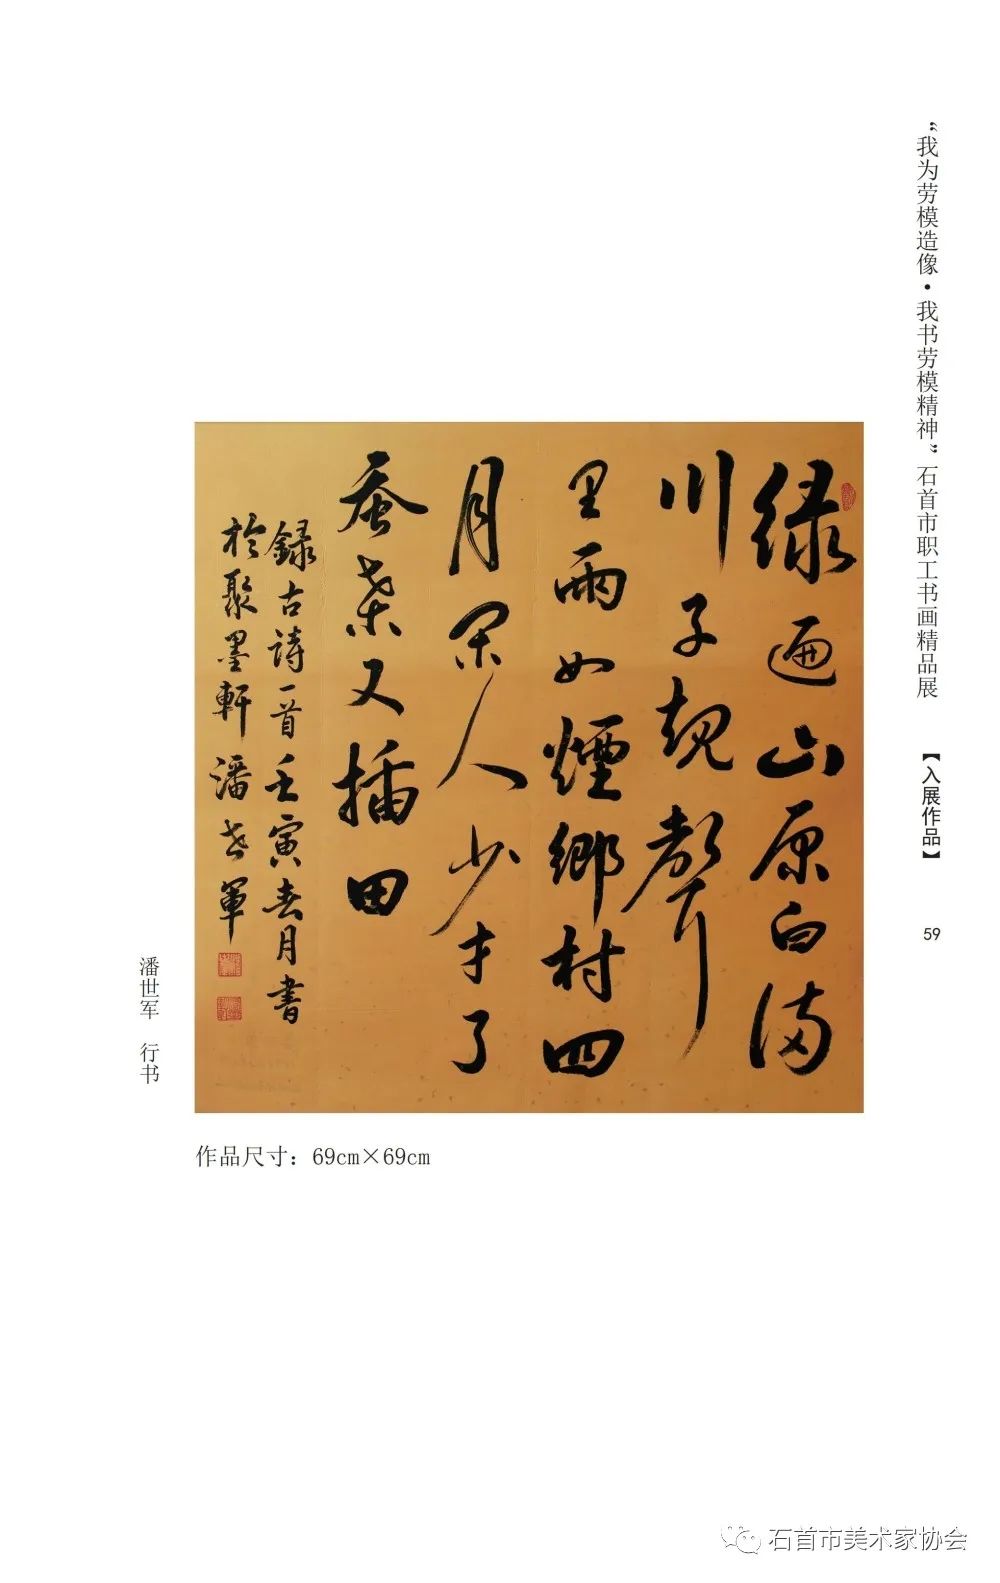 “我为劳模造像·我书劳模精神”石首市职工书画精品展
【入展作品】
59
绿遍山原白满
川子规聲
里雨如煙鄉村四
月閑人少才了
蚕桑又插田
録古詩一首壬寅春月書
於聚墨軒潘世軍
潘世军 行书
作品尺寸：69cm×69cm
石首市美术家协会